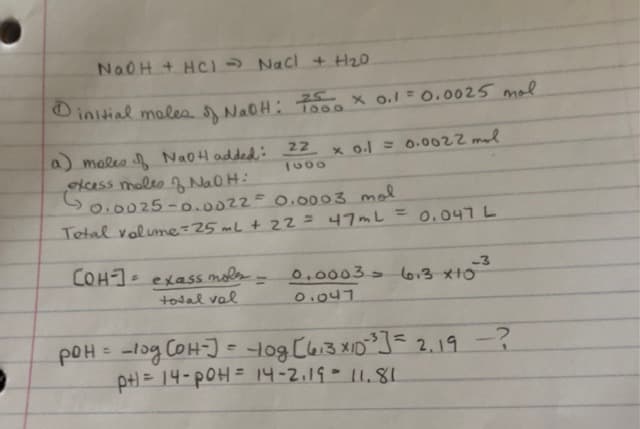 NaOH + HCl ⇒ Nacl + H2O
① initial moles of NaOH: 25/1000 × 0.1 = 0.0025 mol
a) moles of NaOH added: 22/1000 × 0.1 = 0.0022 mol
excess moles of NaOH:
↳ 0.0025-0.0022 = 0.0003 mol
Total volume = 25 mL + 22 = 47mL = 0.047 L
[OH-] = exass moles/total vol = 0.0003/0.047 = 6.3 x10^-3
pOH = -log [OH-] = -log [6.3 x10^-3] = 2.19 -?
pH = 14-pOH = 14-2.19 = 11.81